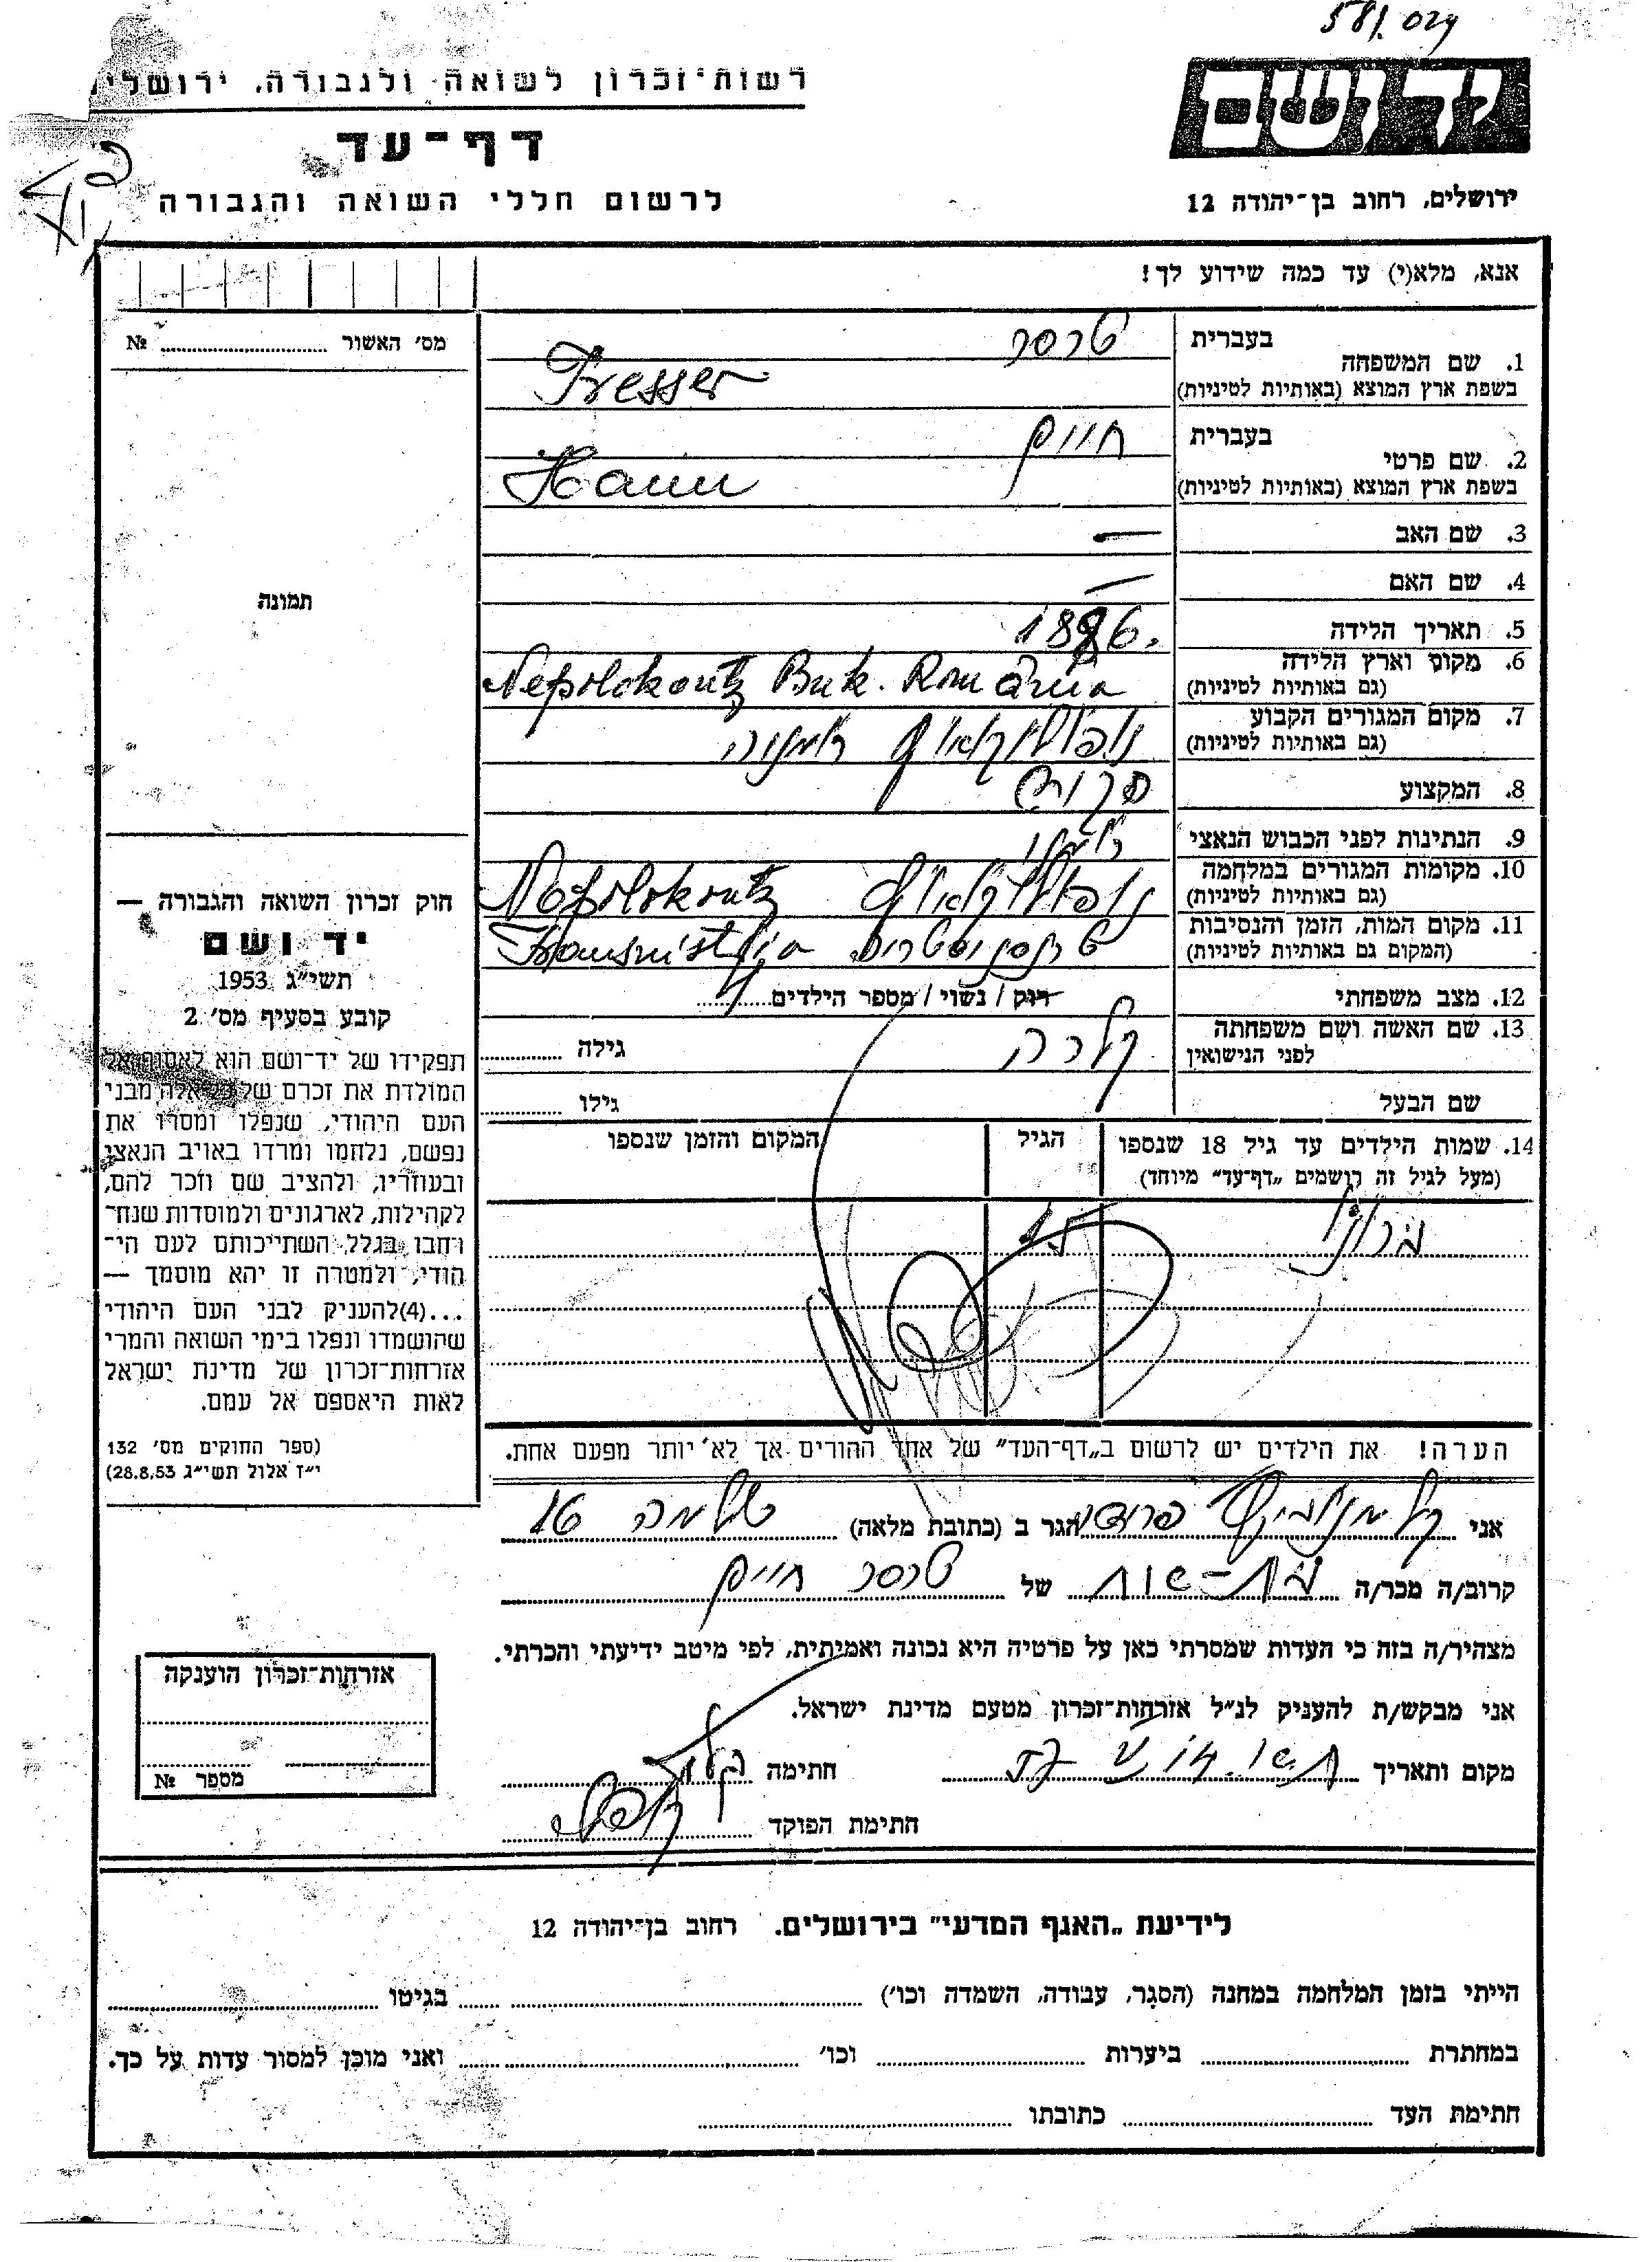 581.
רשות־זכרון לשואה ולגבורה, ירושלי
יד ושם
דף־עד
לרשום חללי השואה והגבורה
ירושלים, רחוב בן־יהודה 12
אנא, מלא(י) עד כמה שידוע לך!
מס׳ האשור № 
תמונה
1. שם המשפחה
בעברית טרסר
בשפת ארץ המוצא (באותיות לטיניות) Tresser
2. שם פרטי
בעברית חיים
בשפת ארץ המוצא (באותיות לטיניות) Haim
3. שם האב —
4. שם האם —
5. תאריך הלידה
6. מקום וארץ הלידה Nepolokoutz Buk. România
(גם באותיות לטיניות)
7. מקום המגורים הקבוע
(גם באותיות לטיניות)
8. המקצוע
9. הנתינות לפני הכבוש הנאצי
10. מקומות המגורים במלחמה Nepolokoutz
(גם באותיות לטיניות)
11. מקום המות, הזמן והנסיבות
(המקום גם באותיות לטיניות)
12. מצב משפחתי רוק / נשוי / מספר הילדים
13. שם האשה ושם משפחתה קלרה גילה
לפני הנישואין
שם הבעל גילו
14. שמות הילדים עד גיל 18 שנספו הגיל המקום והזמן שנספו
(מעל לגיל זה רושמים „דף־עד" מיוחד)
15
הערה! את הילדים יש לרשום ב„דף־העד" של אחד ההורים אך לא יותר מפעם אחת.
חוק זכרון השואה והגבורה —
יד ושם
תשי״ג 1953
קובע בסעיף מס׳ 2
תפקידו של יד־ושם הוא לאסוף אל
המולדת את זכרם של כל אלה מבני
העם היהודי, שנפלו ומסרו את
נפשם, נלחמו ומרדו באויב הנאצי
ובעוזריו, ולהציב שם וזכר להם,
לקהילות, לארגונים ולמוסדות שנח־
רחבו בגלל השתייכותם לעם הי־
הודי, ולמטרה זו יהא מוסמך —
...(4) להעניק לבני העם היהודי
שהושמדו ונפלו בימי השואה והמרי
אזרחות־זכרון של מדינת ישראל
לאות היאספם אל עמם.
(ספר החוקים מס׳ 132
י״ז אלול תשי״ג 28.8.53)
אני הגר ב (כתובת מלאה) שלמה 16
קרוב/ה מכר/ה בת-דוד של טרסר חיים
מצהיר/ה בזה כי העדות שמסרתי כאן על פרטיה היא נכונה ואמיתית, לפי מיטב ידיעתי והכרתי.
אני מבקש/ת להעניק לנ״ל אזרחות־זכרון מטעם מדינת ישראל.
מקום ותאריך חתימה
חתימת הפוקד
אזרחות־זכרון הוענקה
מספר №
לידיעת „האגף המדעי" בירושלים. רחוב בן־יהודה 12
הייתי בזמן המלחמה במחנה (הסגר, עבודה, השמדה וכו׳) בגיטו
במחתרת ביערות וכו׳ ואני מוכן למסור עדות על כך.
חתימת העד כתובתו